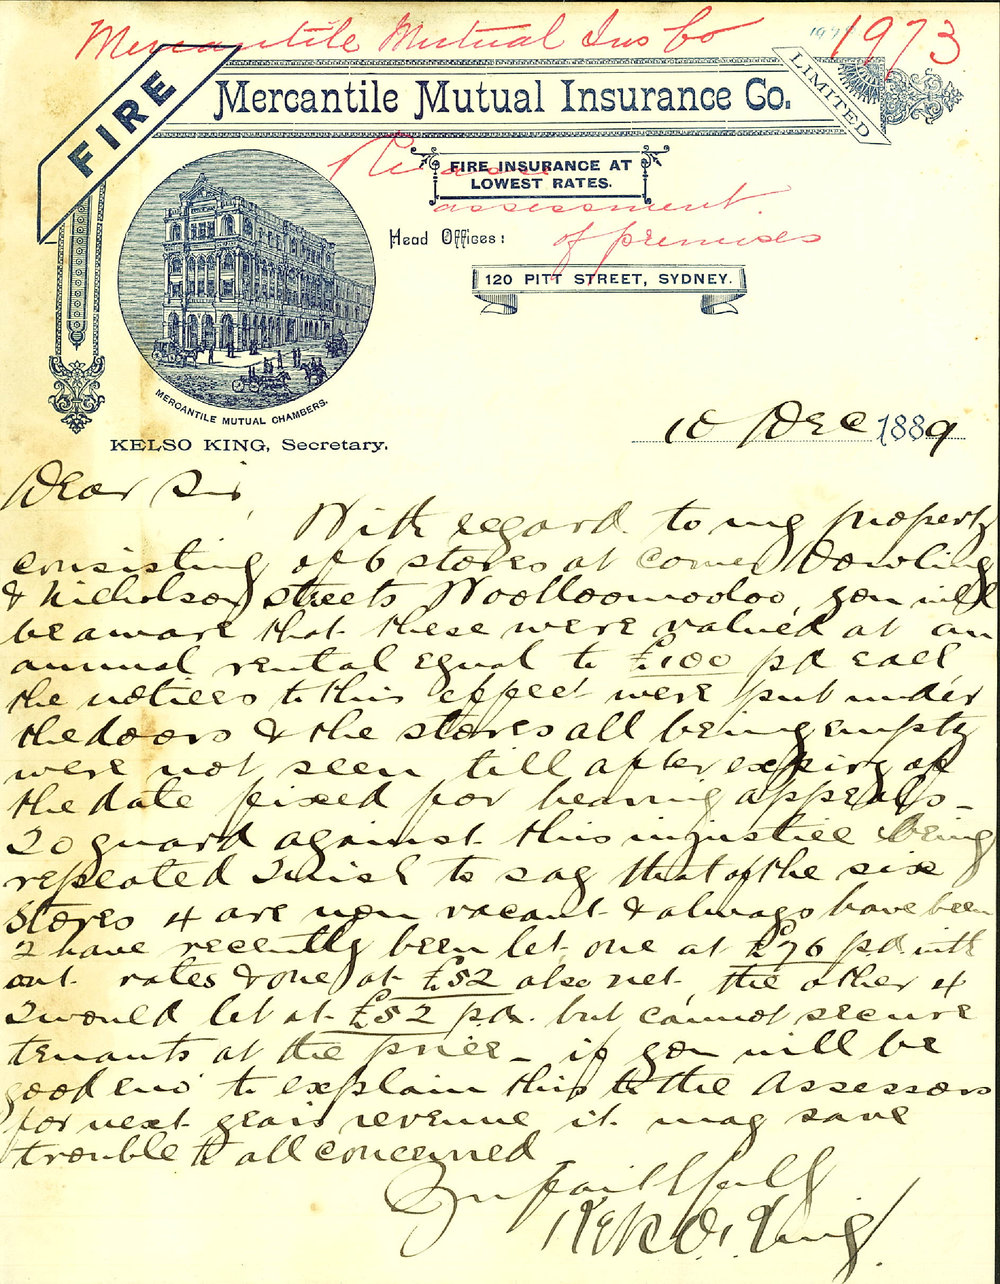 Mercantile Mutual Ins Co 1973
FIRE
Mercantile Mutual Insurance Co.
LIMITED
FIRE INSURANCE AT
LOWEST RATES.
assessment
of premises
Head Offices:
120 PITT STREET, SYDNEY.
MERCANTILE MUTUAL CHAMBERS.
KELSO KING, Secretary.
10 Dec 1889
Dear Sir,
With regard to my property
consisting of 6 stores at corner Dowling
& Nicholson streets Woolloomooloo, you will
be aware that these were valued at an
annual rental equal to £100 pd each
the notices to this effect were put under
the doors & the stores all being empty
were not seen till after expiry of
the date fixed for hearing appeals -
To guard against this injustice being
repeated I wish to say that of the six
stores 4 are now vacant & always have been
2 have recently been let one at £76 p.a. with
out rates & one at £52 also net, the other 4
I would let at £52 p.a. but cannot secure
tenants at the price - if you will be
good eno' to explain this to the Assessors
for next years revenue it may save
trouble to all concerned
Yrs faithfully
King